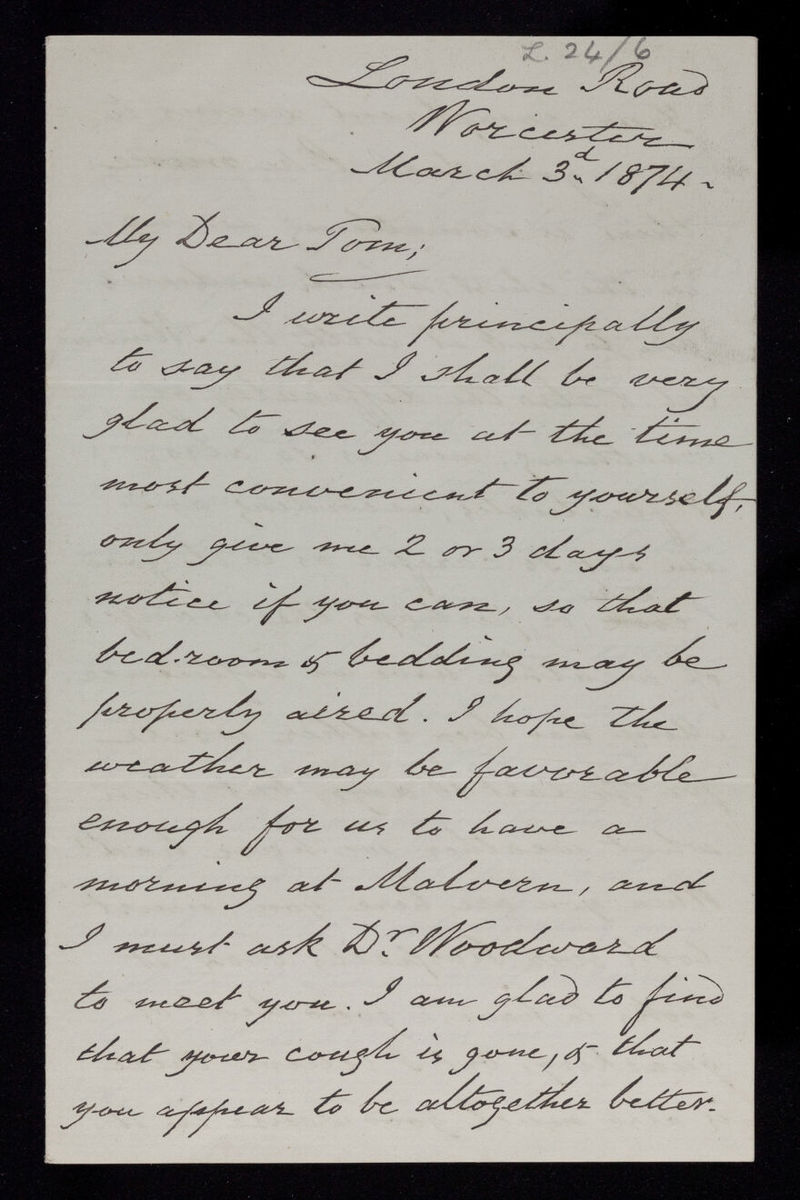 L. 24/6
London Road
Worcester
March 3d. 1874.
My Dear Tom;
I write principally
to say that I shall be very
glad to see you at the time
most convenient to yourself,
only give me 2 or 3 days
notice if you can, so that
bed-room & bedding may be
properly aired. I hope the
weather may be favorable
enough for us to have a
morning at Malvern, and
I must ask Dr. Woodward
to meet you. I am glad to find
that your cough is gone, & that
you appear to be altogether better.